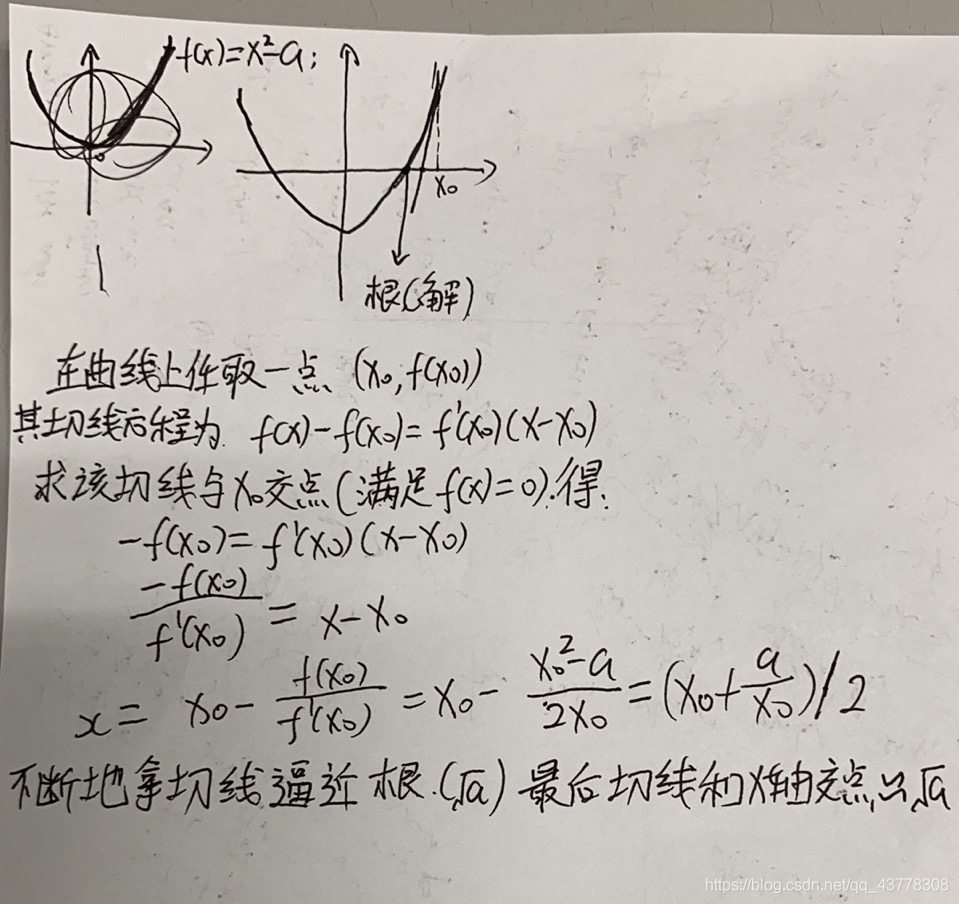 f(x)=x²-a;
x₀
根(解)
在曲线上任取一点 (x₀,f(x₀))
其切线方程为 f(x)-f(x₀)=f'(x₀)(x-x₀)
求该切线与x₀交点(满足f(x)=0).得:
-f(x₀)=f'(x₀)(x-x₀)
-f(x₀)/f'(x₀) = x-x₀
x= x₀- f(x₀)/f'(x₀) = x₀- (x₀²-a)/2x₀ = (x₀+a/x₀)/2
不断地拿切线逼近根.(√a) 最后切线和X轴交点
√a
https://blog.csdn.net/qq_43778308